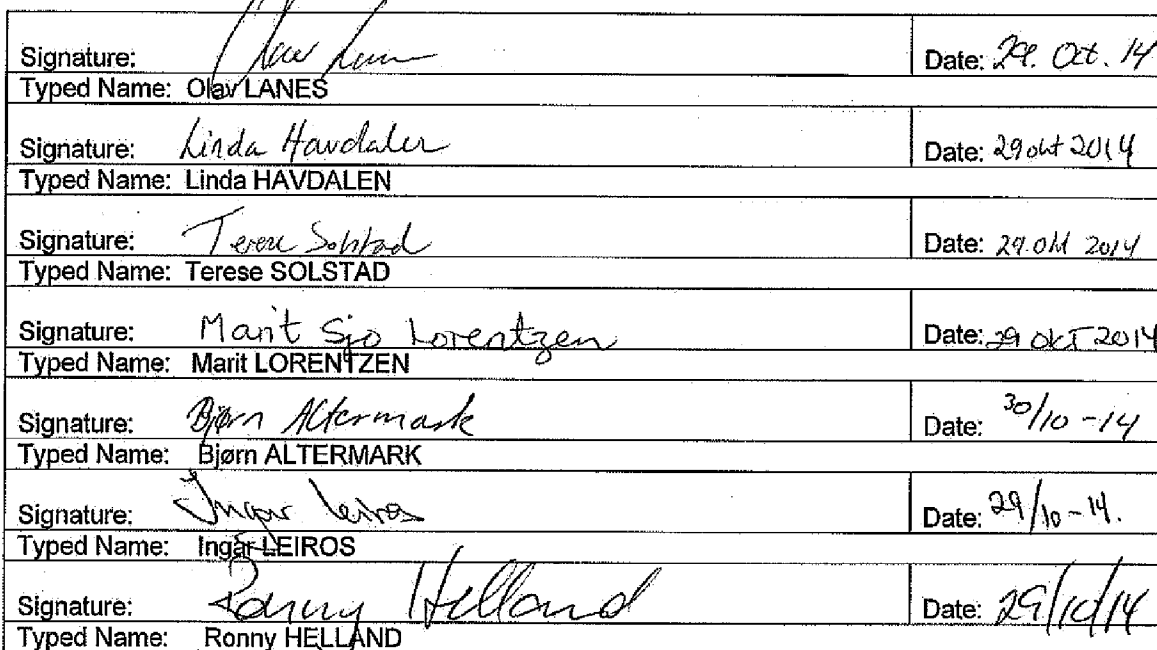 Signature: Date: 29. Oct. 14
Typed Name: Olav LANES
Signature: Linda Havdalen Date: 29 okt 2014
Typed Name: Linda HAVDALEN
Signature: Terese Solstad Date: 29. okt 2014
Typed Name: Terese SOLSTAD
Signature: Marit Sjo Lorentzen Date: 29 OKT 2014
Typed Name: Marit LORENTZEN
Signature: Bjørn Altermark Date: 30/10-14
Typed Name: Bjørn ALTERMARK
Signature: Ingar Leiros Date: 29/10-14.
Typed Name: Ingar LEIROS
Signature: Ronny Helland Date: 29/10/14
Typed Name: Ronny HELLAND